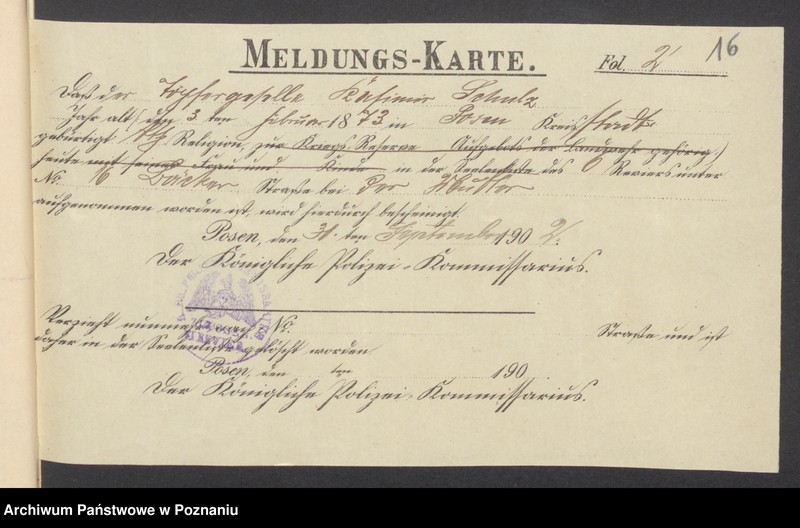 16
MELDUNGS-KARTE. Fol. 2
Daß der Töpfergeselle Kasimir Schulz
Jahr alt/ den 3 ten Februar 1873 in Posen Kreis Stadt
gebürtigt kth Religion, zur Kriegs-Reserve Aufgebots der Landwehr gehörig,
heute mit seiner Frau und Kinde in der Seelenliste des 6 Reviers unter
No. 16 Bäcker Straße bei der Mutter
aufgenommen worden ist, wird hierdurch bescheinigt.
Posen, den ten September 1902.
Der Königliche Polizei-Kommissarius.
Verzieht nunmehr nach No. Straße und ist
daher in der Seelenliste gelöscht worden.
Posen, den ten 190
Der Königliche Polizei-Kommissarius.
Archiwum Państwowe w Poznaniu